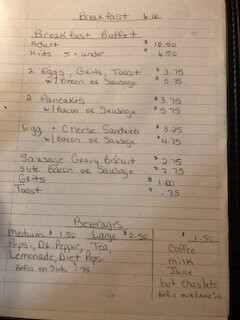 Breakfast 6:00
Breakfast Buffet
Adult $ 10.50
Kids 5 + under $ 6.50
2 Eggs, Grits, Toast $ 3.75
w/ Bacon or Sausage $ 5.75
2 Pancakes $ 3.75
w/ Bacon or Sausage $ 5.75
Egg + Cheese Sandwich $ 3.25
w/ Bacon or Sausage $ 4.75
Sausage Gravy Biscuit $ 2.75
Side Bacon or Sausage $ 2.75
Grits $ 1.00
Toast $ .75
Beverages
Medium $ 1.50 Large $ 2.50
Pepsi, Dr. Pepper, Tea,
Lemonade, Diet Pepsi
Refill on Soda .75
$ 1.50
Coffee
milk
Juice
hot choclate
Refill